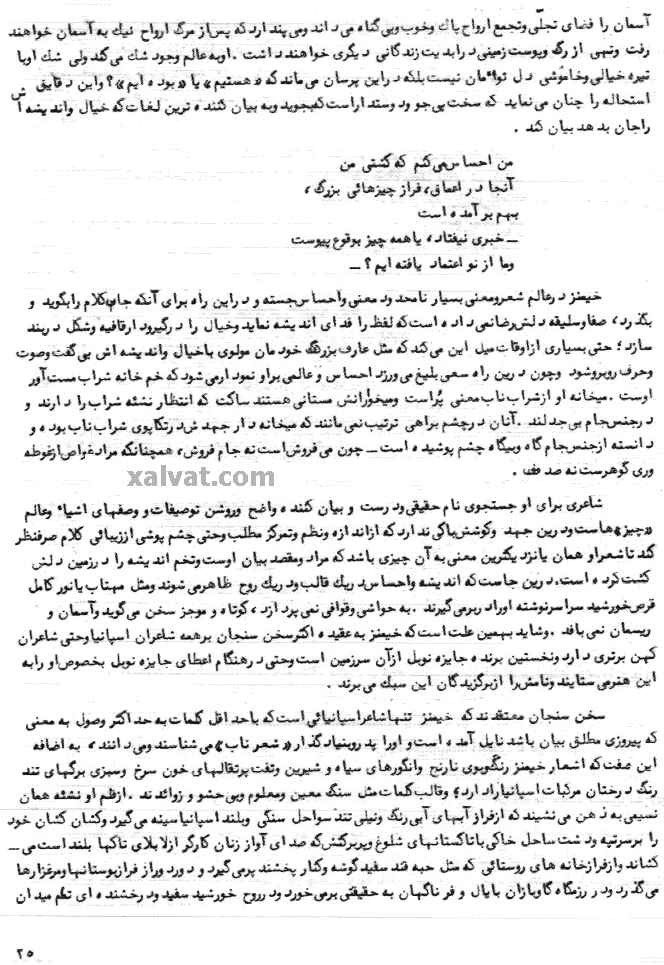 آسمان را فضای تجلّی وتجمع ارواح پاك وخوب وبی گناه می داند ومی پندارد که پس از مرگ ارواح نیك به آسمان خواهند
رفت وتهی از رگ وپوست زمینی در ابدیت زندگانی دیگری خواهند داشت . او به عالم وجود شك می کند ولی شك او با
تیره خیالی وخاموشی دل توأمان نیست بلکه در این پرسان می ماند که «هستیم» یا «بوده ایم»؟ واین دقایق
استحاله را چنان می نماید که سخت پی جو ودوستدار است که بجوید وبه بیان کننده ترین لغات که خیال واندیشه اش
راجان بدهد بیان کند .
من احساس می کنم که کشتی من
آنجا در اعماق، فراز چیزهائی بزرگ ،
بهم بر آمده است
ــ خبری نیفتاد، یا همه چیز بوقوع پیوست
وما از نو اعتماد یافته ایم ؟ ــ
خیمنز در عالم شعر ومعنی بسیار نامحدود معنی واحساس جسته و در این راه برای آنکه جان کلام را بگوید و
بگذرد، صفا وسلیقه دلش رضا نمی داده است که لفظ را فدای اندیشه نماید وخیال را درگیر ودار قافیه وشکل دربند
سازد؛ حتی بسیاری از اوقات میل این می کند که مثل عارف بزرگ خودمان مولوی باخیال واندیشه اش بی گفت وصوت
وحرف روبرو شود وچون درین راه سعی بلیغ می ورزد احساس وعالمی بر او نمودار می شود که خم خانه شراب مست آور
اوست . میخانه او از شراب ناب معنی پُر است ومیخوارانش مستانی هستند ساکت که انتظار نشئه شراب را دارند و
در جنس جام بی جدلند . آنان در چشم براهی ترتیب نمی مانند که میخانه دار جهدش در تکاپوی شراب ناب بوده و
دانسته از جنس جام گاه وبیگاه چشم پوشیده است ــ چون می فروش است نه جام فروش، همچنانکه مراد غواص از غوطه
وری گوهرست نه صدف .
xalvat.com
شاعری برای او جستجوی نام حقیقی ودرست و بیان کننده واضح وروشن توصیفات و وصفهای اشیاء وعالم
«چیز»هاست ودرین جهد وکوشش باکی ندارد که از اندازه ونظم وتمرکز مطلب وحتی چشم پوشی از زیبائی کلام صرفنظر
کند تا شعر او همان یا نزدیکترین معنی به آن چیزی باشد که مراد ومقصد بیان اوست وتخم اندیشه را در زمین دلش
کشت کرده است. درین جاست که اندیشه واحساس در یك قالب ودر یك روح ظاهر می شوند ومثل مهتاب یا نور کامل
قرص خورشید سراسر نوشته او را دربر می گیرند . به حواشی وقوافی نمی پردازد، کوتاه و موجز سخن می گوید وآسمان و
ریسمان نمی بافد . وشاید بهمین علت است که خیمنز به عقیده اکثر سخن سنجان برهمه شاعران اسپانیا وحتی شاعران
کهن برتری دارد ونخستین برنده جایزه نوبل از آن سرزمین است وحتی در هنگام اعطای جایزه نوبل بخصوص او را به
این هنر می ستایند ونامش را از برگزیدگان این سبك می برند .
سخن سنجان معتقدند که خیمنز تنها شاعر اسپانیائی است که با حداقل کلمات به حداکثر وصول به معنی
که پیروزی مطلق بیان باشد نایل آمده است و او را پدر وبنیادگذار «شعر ناب» می شناسند ومی دانند ، به اضافه
این صفت که اشعار خیمنز رنگ وبوی نارنج وانگورهای سیاه و شیرین وتفت پرتقالهای خون سرخ وسبزی برگهای تند
رنگ درختان مرکبات اسپانیا را دارد؛ وقالب کلمات مثل سنگ معین ومعلوم وبی حشو و زوائدند . از قلم او نشئه همان
نسیمی به ذهن می نشیند که از فراز آبهای آبی رنگ ونیلی تند سواحل سنگی وبلند اسپانیا سینه می گیرد وکشان کشان خود
را بر سر تپه ودشت ساحل خاکی با تاکستانهای شلوغ وپربرگش که صدای آواز زنان کارگر از لابلای تاکها بلند است می ــ
کشاند و از فراز خانه های روستائی که مثل حبه قند سفید گوشه وکنار پخشند برمی گیرد و دور دور از فراز بوستانها ومرغزارها
می گذرد ودر رزمگاه گاوبازان بایال و فر ناگهان به حقیقتی برمی خورد ودر روح خورشید سفید ودرخشنده ای تمام میدان
۲۵